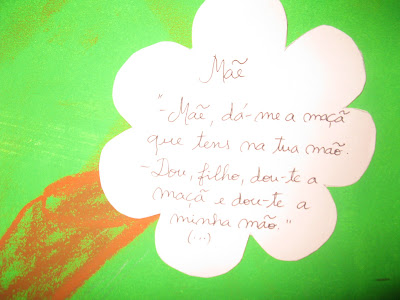 Mãe
"-Mãe, dá-me a maçã
que tens na tua mão.
-Dou, filho, dou-te a
maçã e dou-te a
minha mão."
(...)